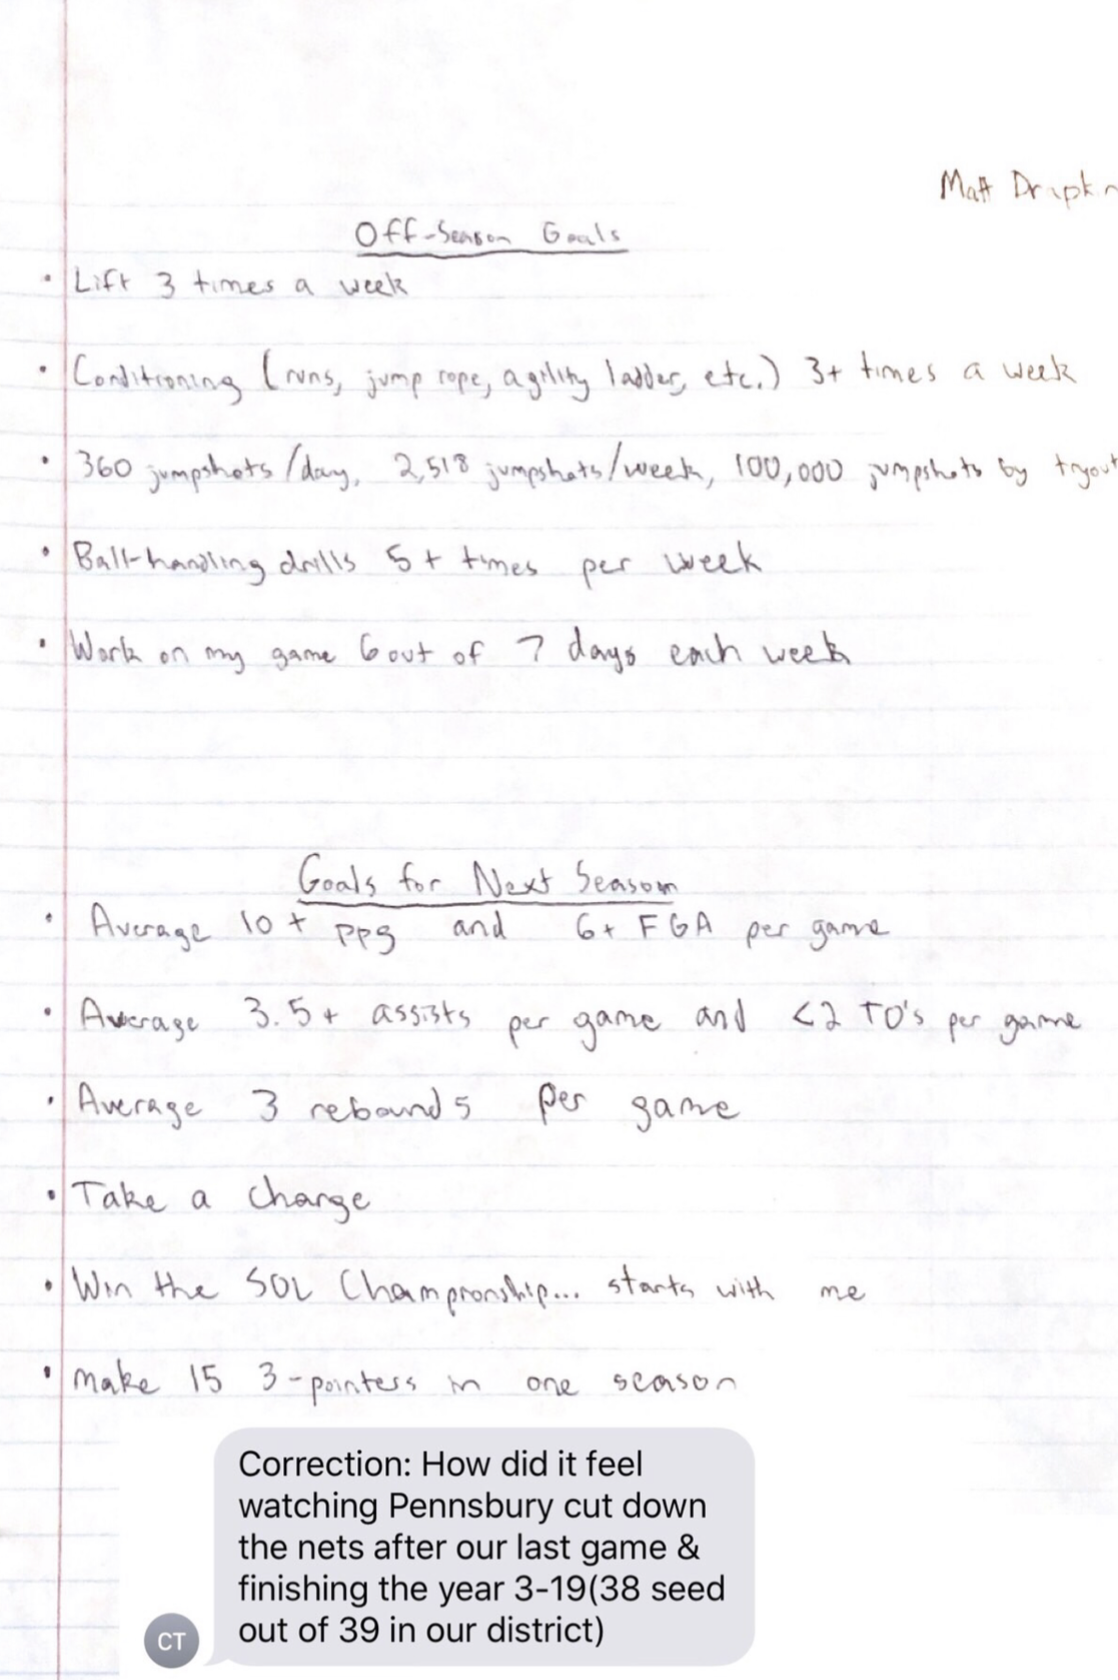 Matt Drapkin
Off-Season Goals
• Lift 3 times a week
• Conditioning (runs, jump rope, agility ladder, etc.) 3+ times a week
• 360 jumpshots/day, 2,518 jumpshots/week, 100,000 jumpshots by tryout
• Ball-handling drills 5+ times per week
• Work on my game 6 out of 7 days each week
Goals for Next Season
• Average 10+ PPg and 6+ FGA per game
• Average 3.5+ assists per game and <2 TO's per game
• Average 3 rebounds per game
• Take a charge
• Win the SOL Championship... starts with me
• Make 15 3-pointers in one season
Correction: How did it feel
watching Pennsbury cut down
the nets after our last game &
finishing the year 3-19(38 seed
out of 39 in our district)
CT